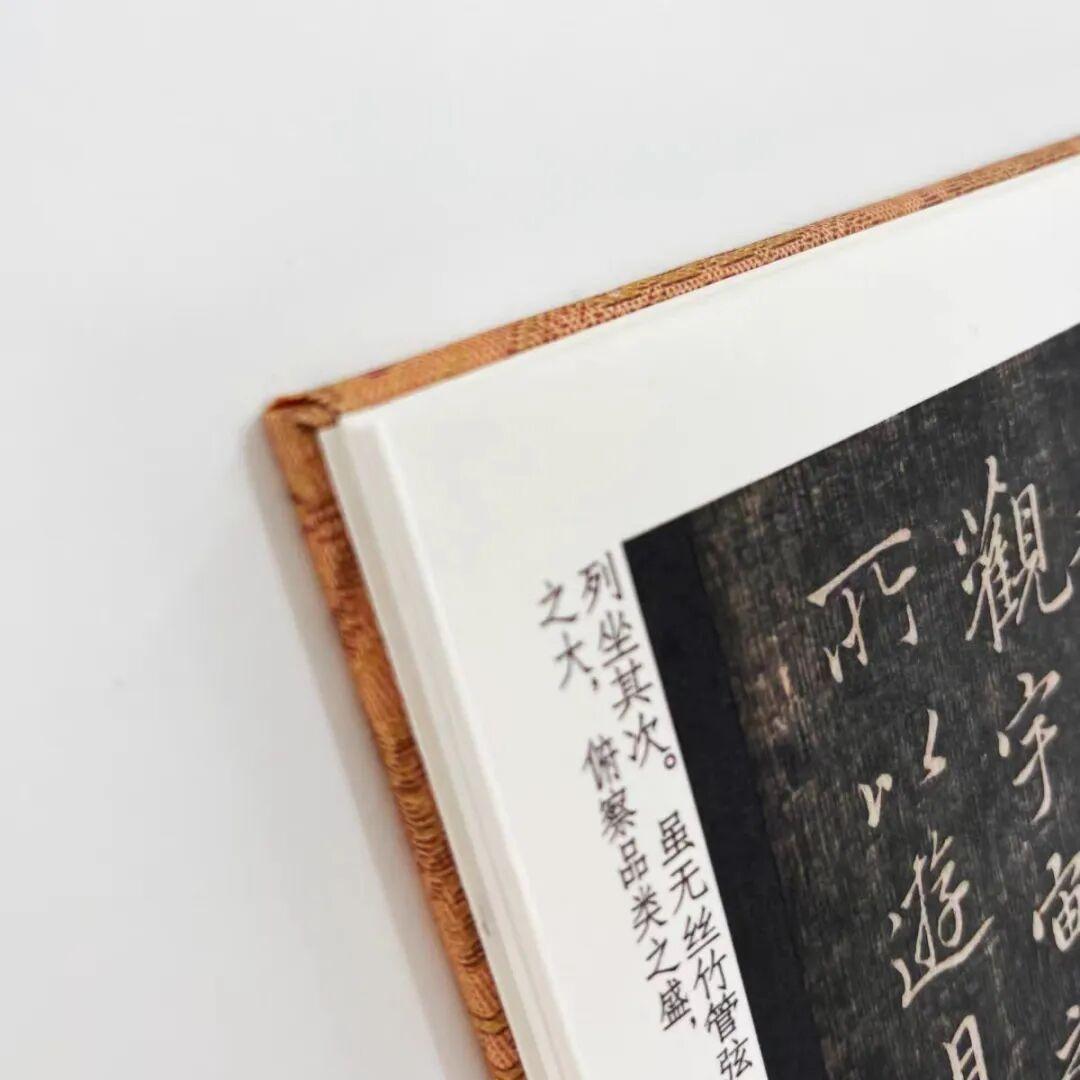 列坐其次。虽无丝竹管弦
之大，俯察品类之盛，
觀宇宙
所以遊目